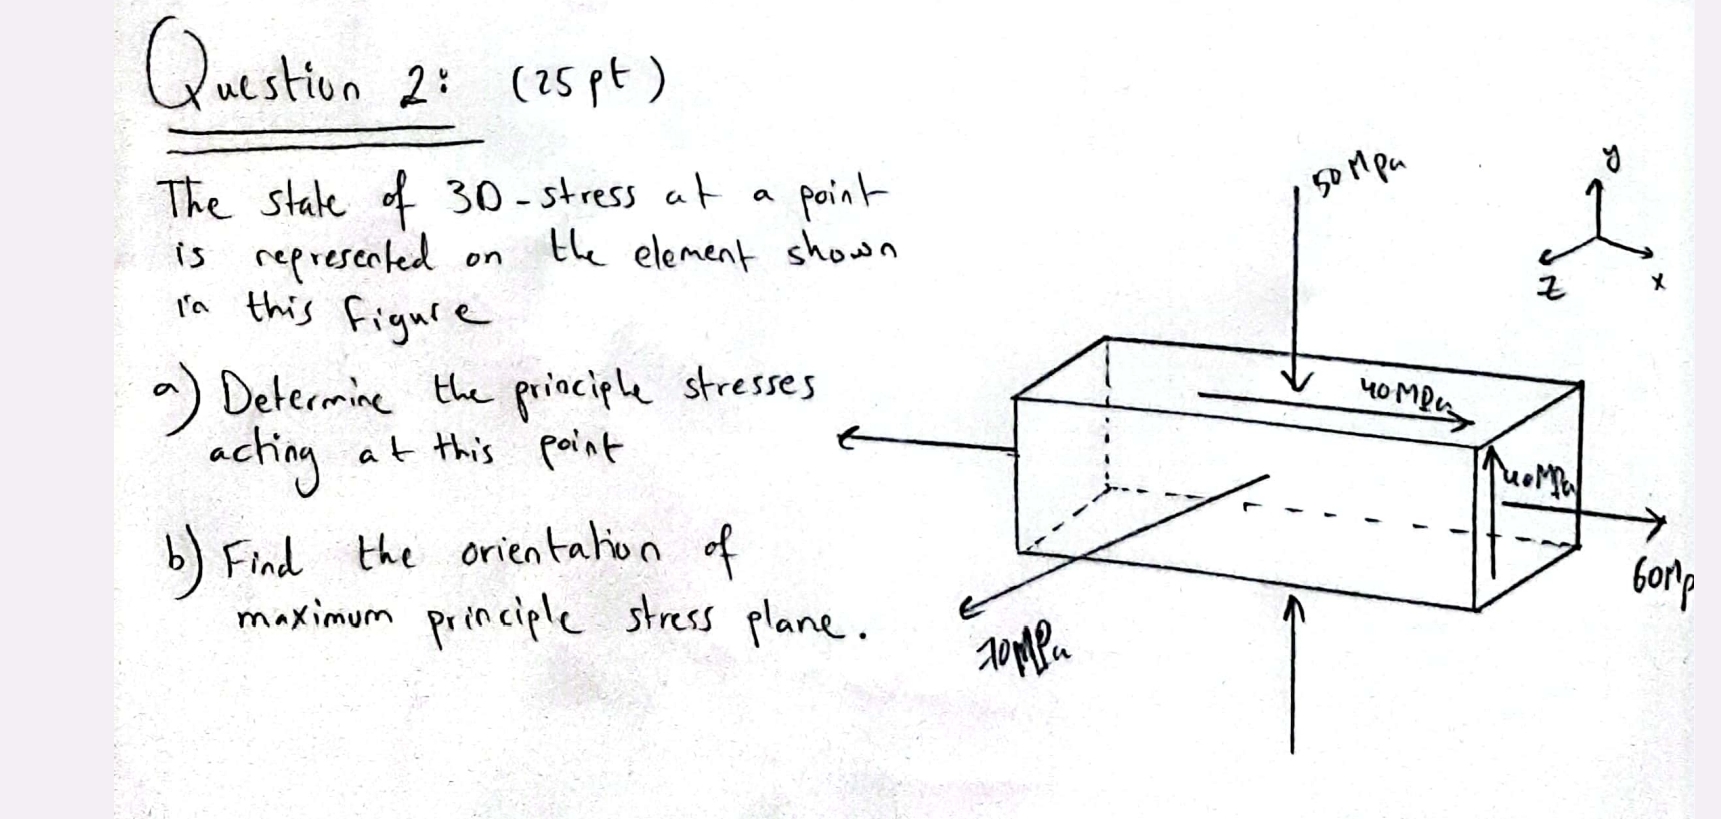 Question 2: (25 pt)
The state of 3D-stress at a point
is represented on the element shown
in this figure
a) Determine the principle stresses
acting at this point
b) Find the orientation of
maximum principle stress plane.
50 Mpa
y
z
x
40 MPa
40 MPa
60Mp
70MPa